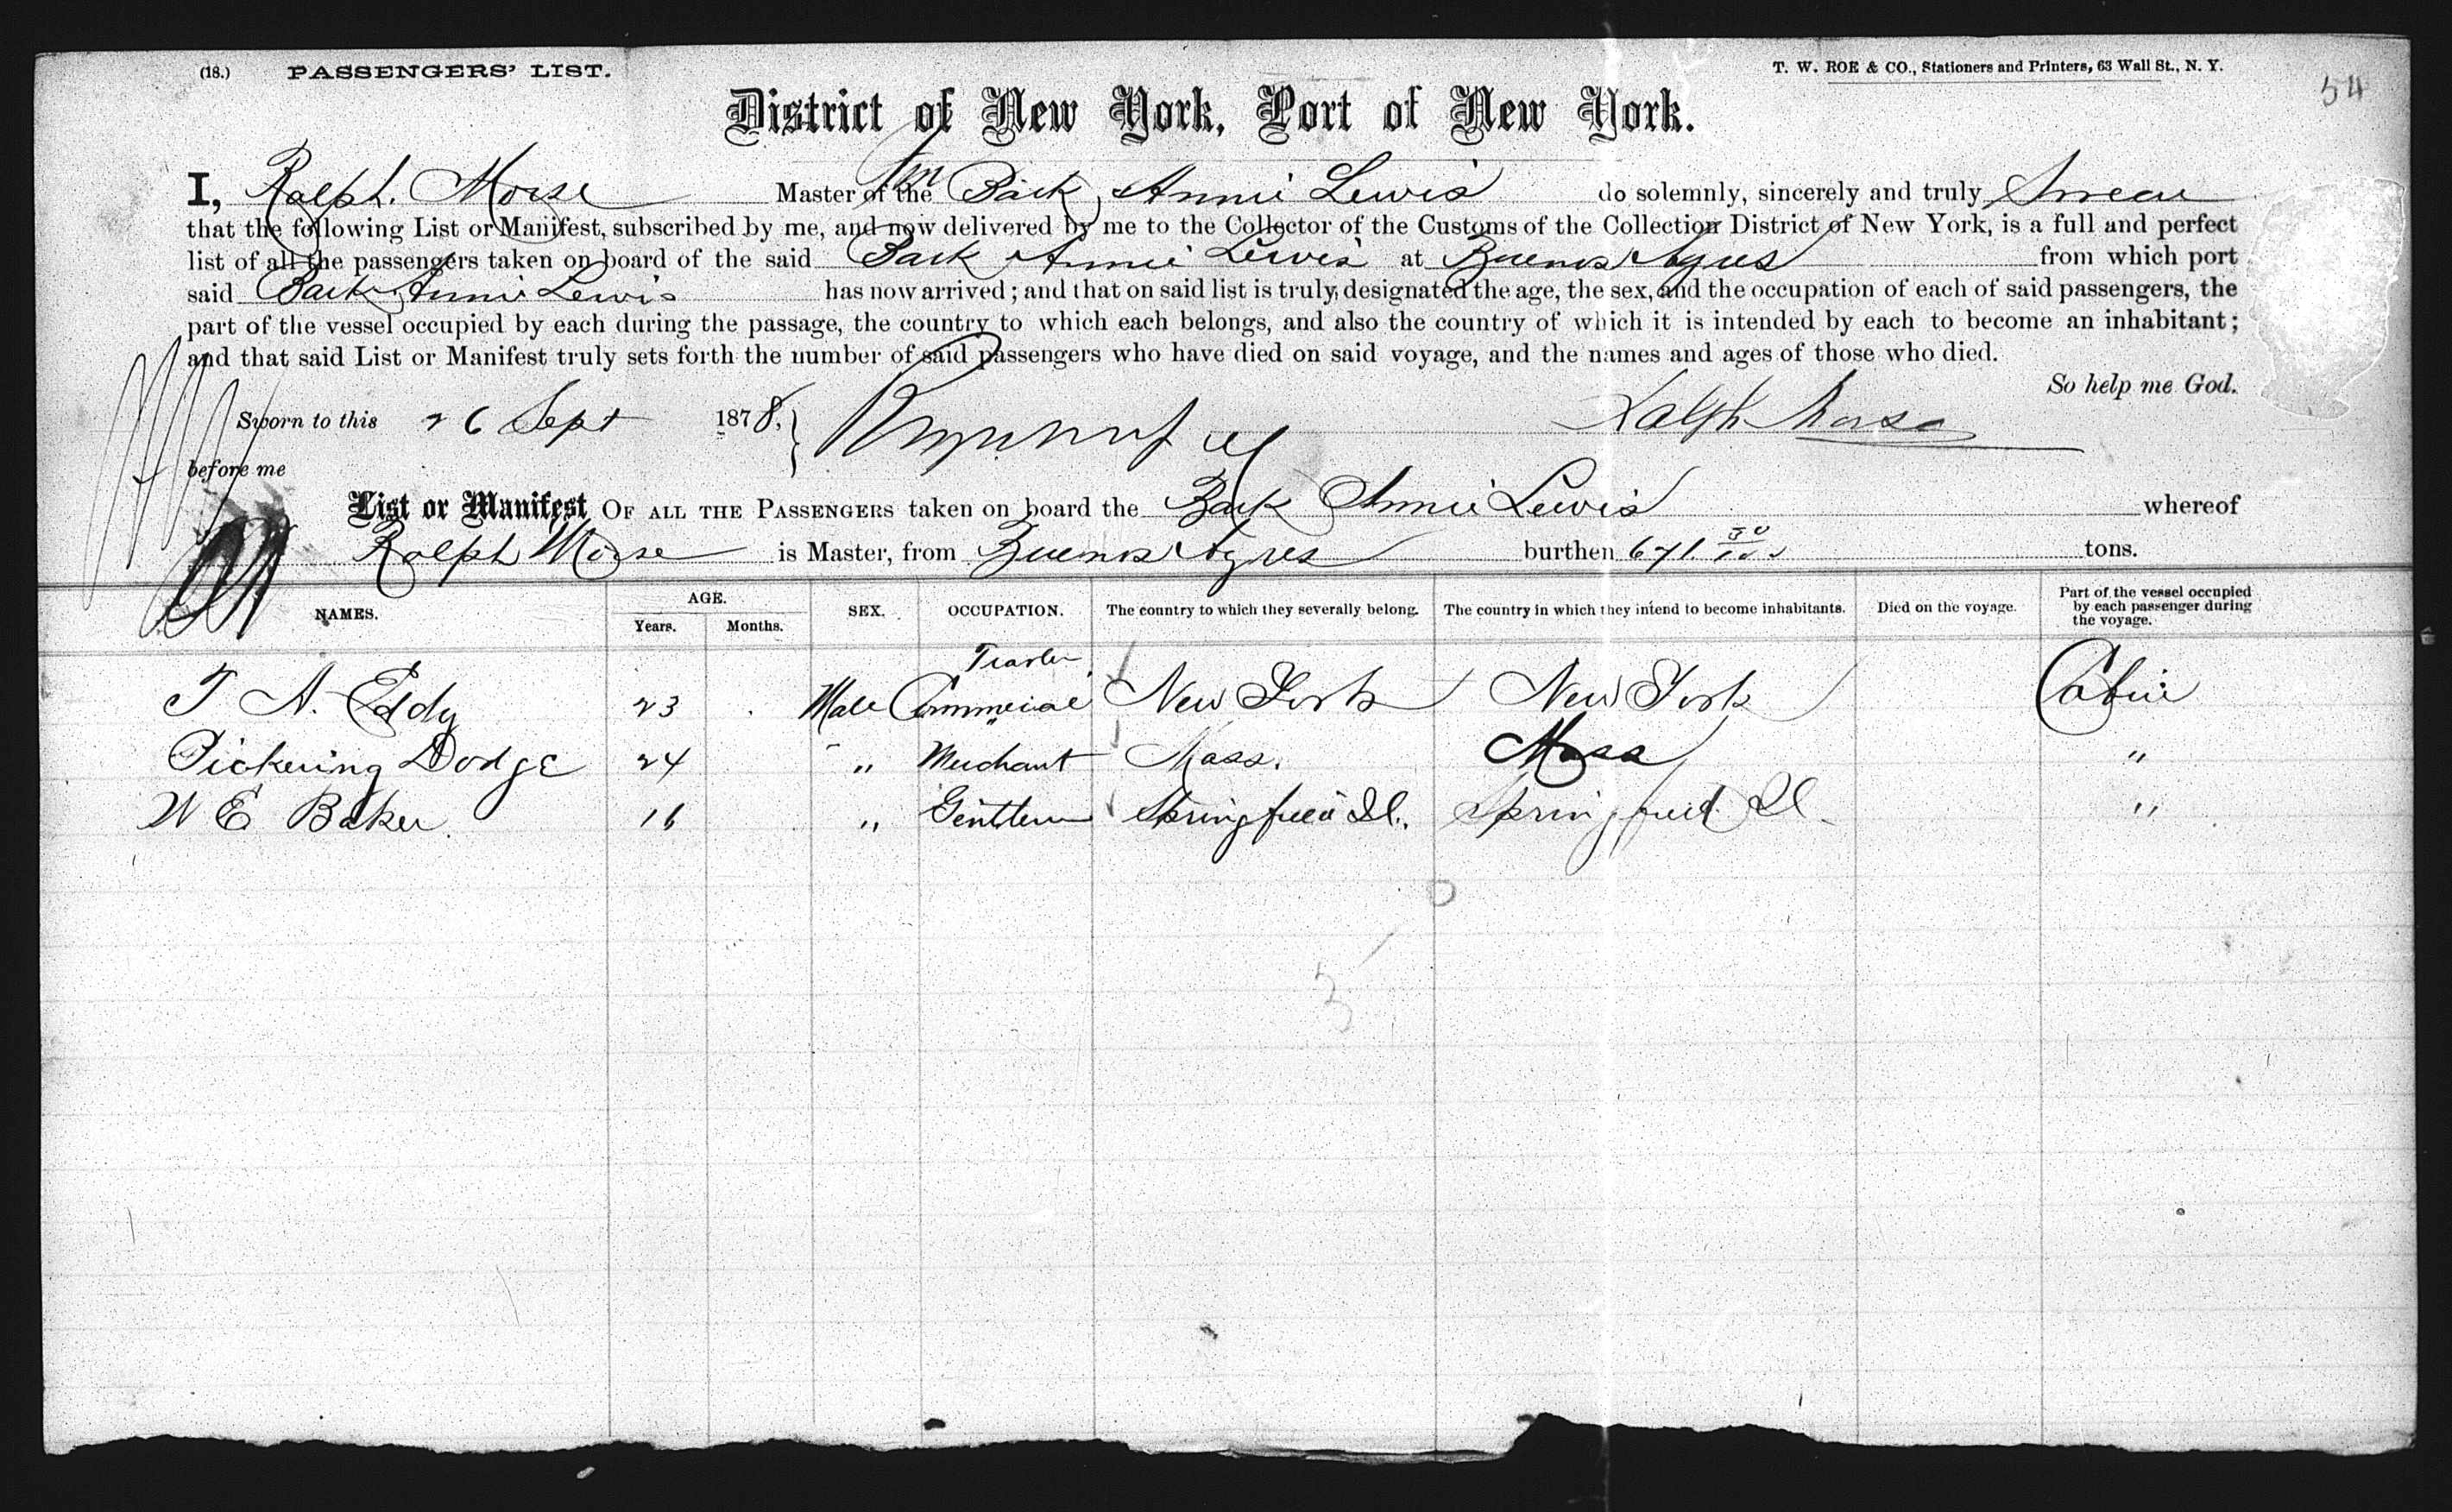 (18.) PASSENGERS' LIST. T. W. ROE & CO., Stationers and Printers, 63 Wall St., N. Y.
54
District of New York, Port of New York.
I, Ralph. Morse Master of the Am Bark, Annie Lewis do solemnly, sincerely and truly Swear
that the following List or Manifest, subscribed by me, and now delivered by me to the Collector of the Customs of the Collection District of New York, is a full and perfect
list of all the passengers taken on board of the said Bark Annie Lewis at Buenos Ayres from which port
said Bark Annie Lewis has now arrived; and that on said list is truly designated the age, the sex, and the occupation of each of said passengers, the
part of the vessel occupied by each during the passage, the country to which each belongs, and also the country of which it is intended by each to become an inhabitant;
and that said List or Manifest truly sets forth the number of said passengers who have died on said voyage, and the names and ages of those who died.
So help me God.
Sworn to this 26 Sept 1878, Ralph Morse
before me
List or Manifest OF ALL THE PASSENGERS taken on board the Bark Annie Lewis whereof
Ralph Morse is Master, from Buenos Ayres burthen 671 30/100 tons.
NAMES. AGE. Years. Months. SEX. OCCUPATION. The country to which they severally belong. The country in which they intend to become inhabitants. Died on the voyage. Part of the vessel occupied by each passenger during the voyage.
T A. Eddy 23 Male Commercial Traveler New York New York Cabin
Pickering Dodge 24 " Merchant Mass. Mass "
W E Baker 16 " Gentlem Springfield Il. Springfield Il "
3